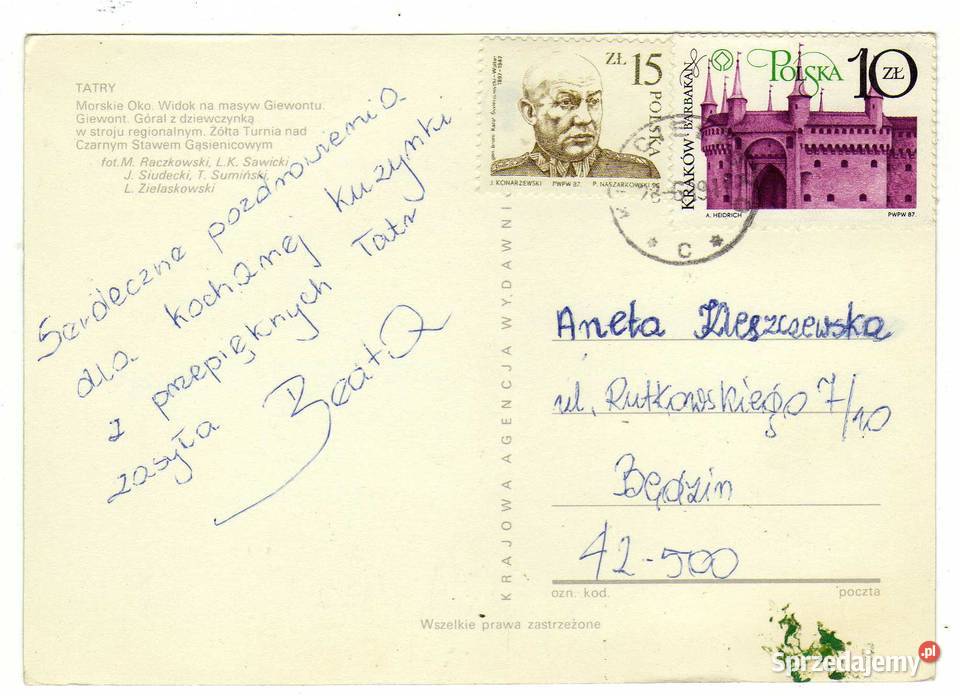 TATRY
Morskie Oko. Widok na masyw Giewontu.
Giewont. Góral z dziewczynką
w stroju regionalnym. Żółta Turnia nad
Czarnym Stawem Gąsienicowym
fot. M. Raczkowski, L.K. Sawicki
J. Siudecki, T. Sumiński,
L. Zielaskowski
Serdeczne pozdrowienia
dla kochanej kuzynki
z przepięknych Tatr
zasyła Beata
ZŁ 15
POLSKA
J. KONARZEWSKI PWPW 87. P. NASZARKOWSKI SC.
POLSKA
10 ZŁ
KRAKÓW · BARBAKAN
A. HEIDRICH PWPW 87.
C
KRAJOWA AGENCJA WYDAWNI
Aneta Kleszczewska
ul. Rutkowskiego 7/10
Będzin
42-500
ozn. kod. poczta
Wszelkie prawa zastrzeżone
Sprzedajemy.pl